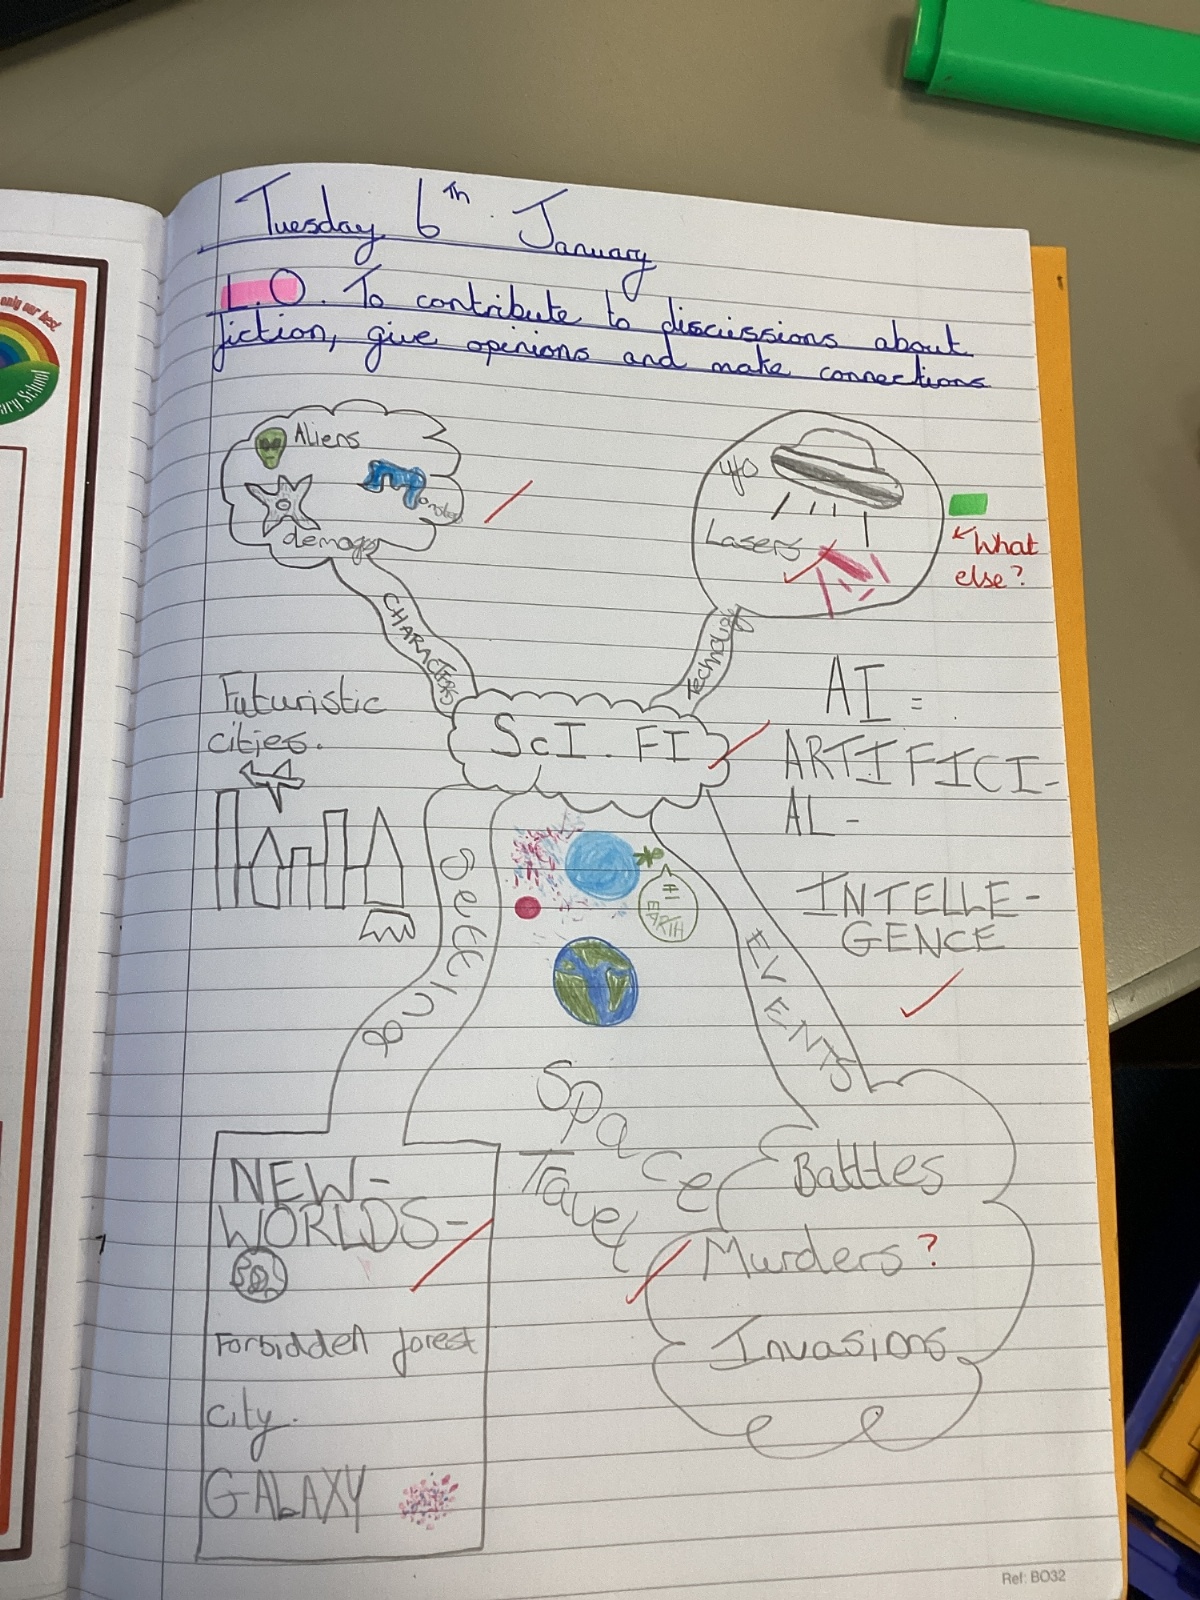 Tuesday 6th January
L.O. To contribute to discussions about
fiction, give opinions and make connections
only our best
ary School
Aliens
demogs
CHARACTERS
ufo
Lasers
What
else?
Technology
Futuristic
cities.
SCI.FI
AI =
ARTIFICI-
AL-
INTELLE-
GENCE
Setting
EARTH
EVENTS
Space
Travel
NEW-
WORLDS-
Forbidden forest
city.
GALAXY
Batttles
Murders?
Invasions
Ref: BO32